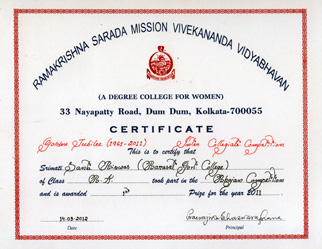 RAMAKRISHNA SARADA MISSION VIVEKANANDA VIDYABHAVAN
(A DEGREE COLLEGE FOR WOMEN)
33 Nayapatty Road, Dum Dum, Kolkata-700055
CERTIFICATE
Golden Jubilee (1961-2011) Inter Collegiate Competition
This is to certify that
Srimati Biswas (Barasat Govt. College)
of Class took part in the Competition
and is awarded Prize for the year 2011
14-03-2012
Date Principal